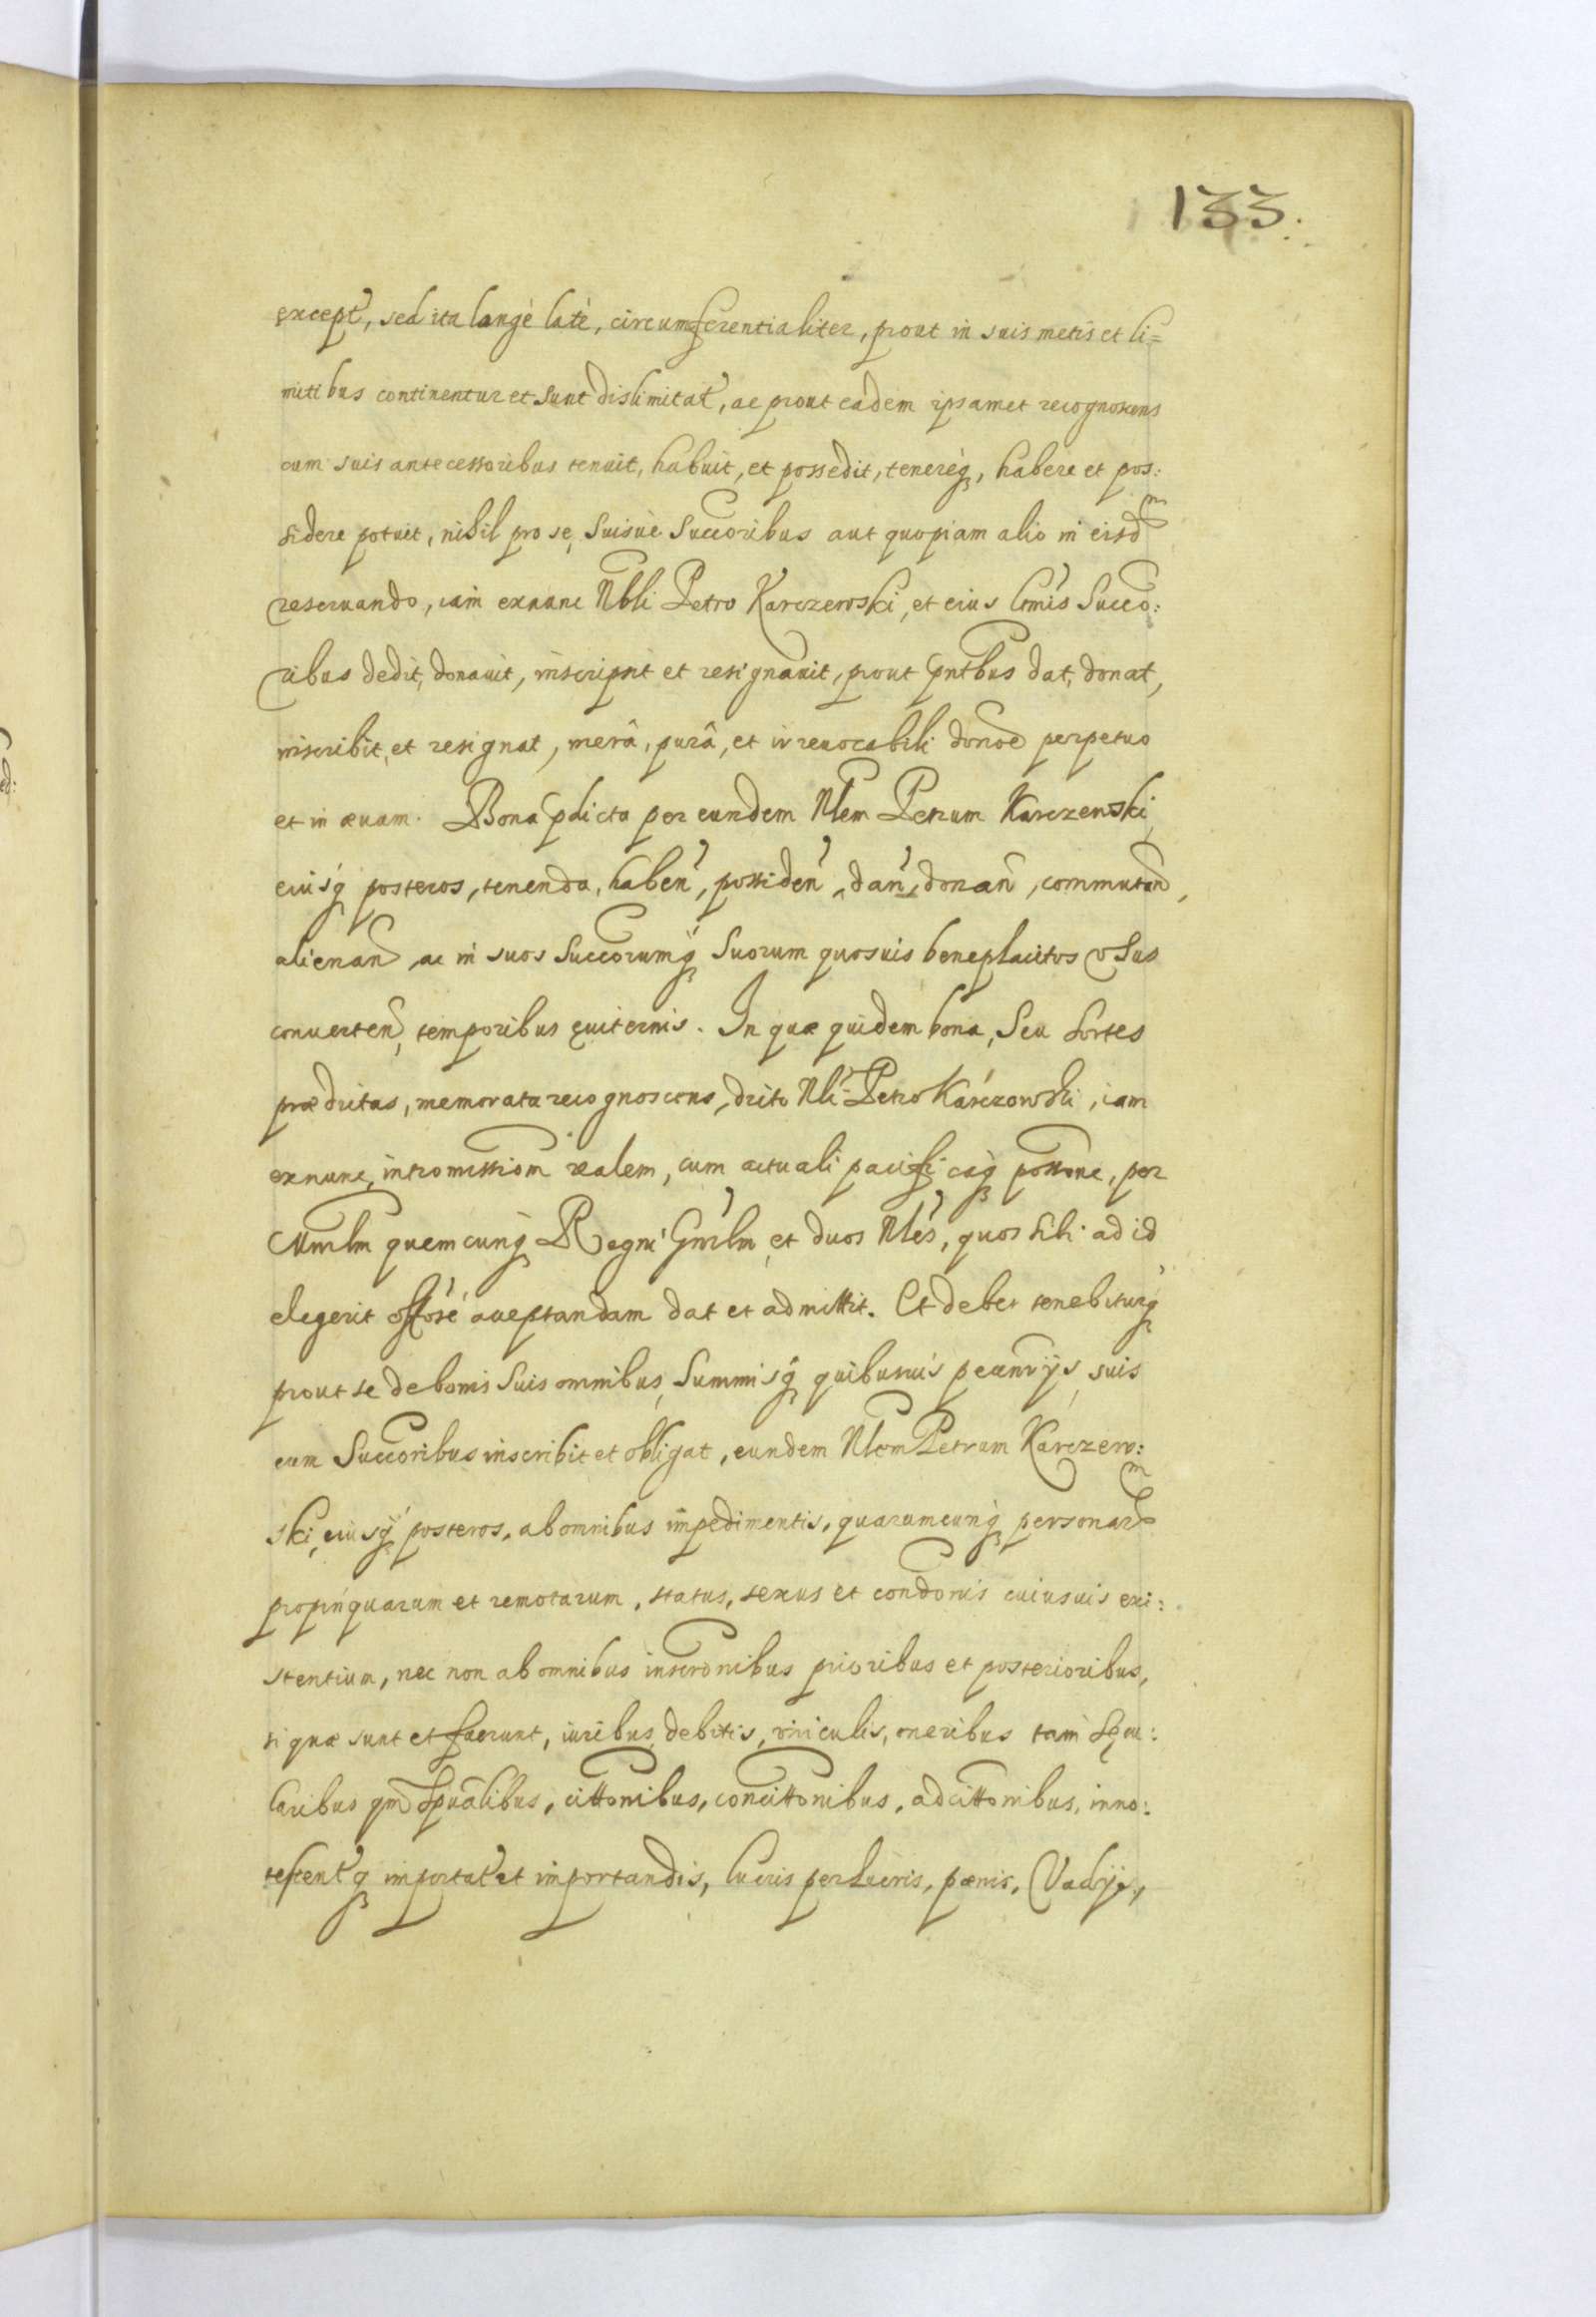 133.
except, sed ita longè latè, circumferentialiter, prout in suis metis et li=
mitibus continentur et sunt dislimitat, ac prout eadem ipsamet recognoscens
cum suis antecessoribus tenuit, habuit, et possedit, tenereq, habere et pos:
sidere potuit, nihil pro se, suisuè Succoribus aut quopiam alio in eisdm
reseruando, iam exnunc Nbli Petro Karczewski, et eius Ltmis Succo:
ribus dedit, donauit, inscripsit et resignauit, prout pntbus dat, donat,
inscribit, et resignat, merâ, purâ, et irreuocabili donoe perpetuo
et in æuum. Bona pdicta per eundem Nlem Petrum Karczewski,
eiusq posteros, tenenda, haben, possiden, dan, donan, commutan,
alienan, ac in suos Succorumq suorum quosuis beneplacitos vsus
conuerten, temporibus ęuiternis. In quæ quidem bona, seu sortes
prædictas, memorata recognoscens, dicto Nli Petro Karczowski, iam
exnunc, intromissiom realem, cum actuali pacificaq possone, per
Mnrlm quemcunq Regni Gnrlm, et duos Nles, quos sibi ad id
elegerit offose acceptandam dat et admittit. Et debet tenebiturq
prout se de bonis suis omnibus, summisq quibusuis pecunrijs, suis
cum Succoribus inscribit et obligat, eundem Nlem Petrum Karczew:
ski, eiusq posteros, ab omnibus impedimentis, quarumcunq personarm
propinquarum et remotarum, status, sexus et condonis cuiusuis exi:
stentium, nec non ab omnibus inscronibus prioribus et posterioribus,
si quæ sunt et fuerunt, iuribus, debitis, vinculis, oneribus tam sęcu:
laribus qm spualibus, cittonibus, concittonibus, adcittonibus, inno:
tescentq importat et importandis, lucris perlucris, pænis, Vadijs,